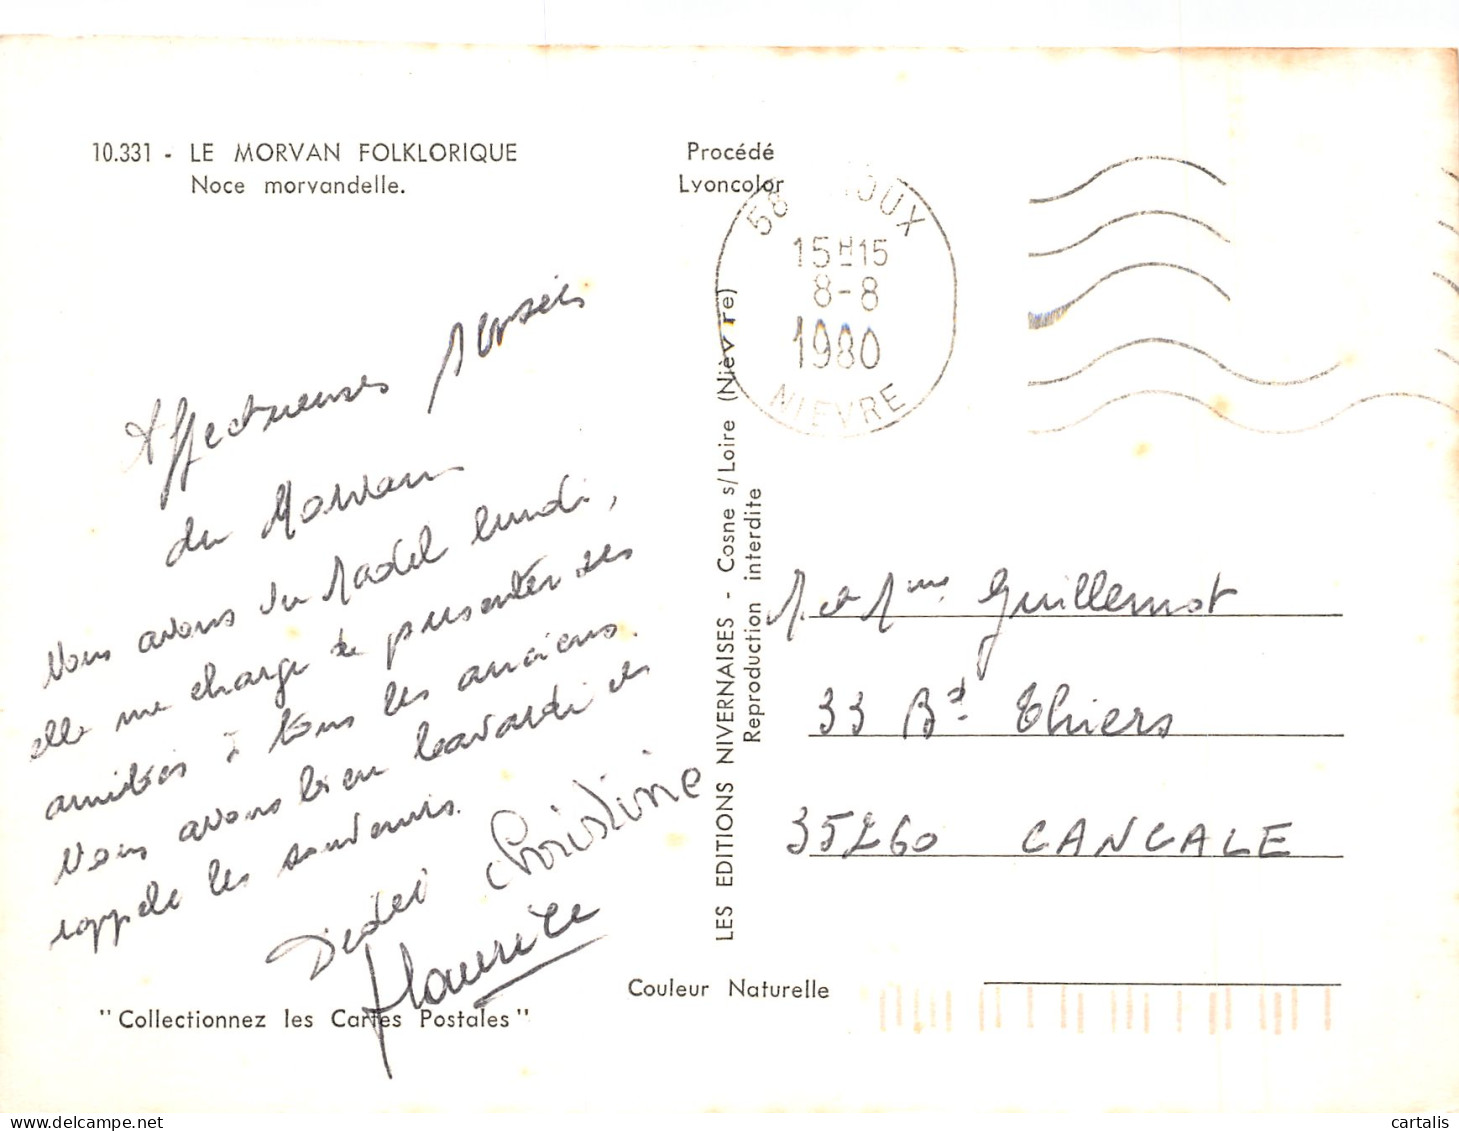 10.331 - LE MORVAN FOLKLORIQUE
Noce morvandelle.
Procédé
Lyoncolor
58 OUX
15H15
8-8
1980
NIEVRE
Affectueuses pensées
du Morvan
Nous avons vu Madel lundi,
elle me charge de présenter ses
amitiés à tous les anciens.
Nous avons bien bavardé et
rappelé les souvenirs.
Didier Christine
Maurice
"Collectionnez les Cartes Postales"
LES EDITIONS NIVERNAISES - Cosne s/Loire (Nièvre)
Reproduction interdite
M. et Mme Guillemot
33 Bd. Thiers
35260 CANCALE
Couleur Naturelle
cartalis